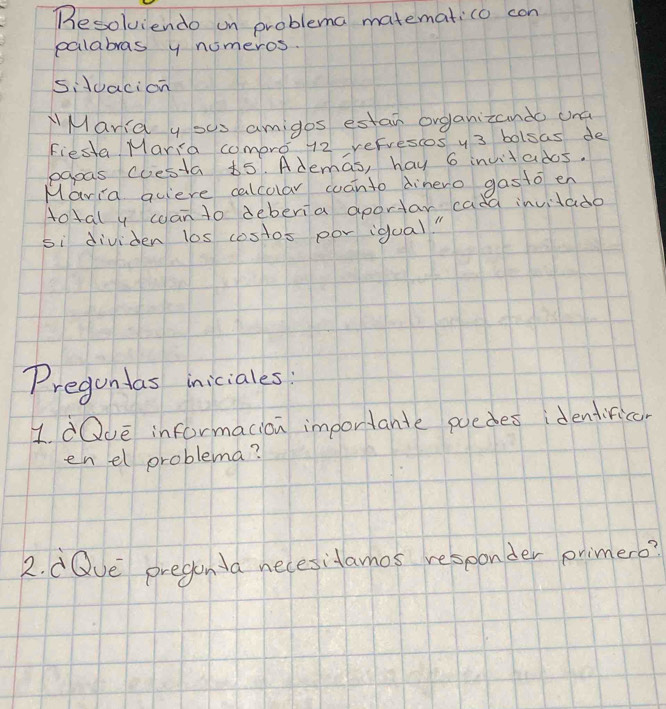 Resolviendo un problema matematico con
palabras y números.
Situación
"María y sus amigos están organizando una
fiesta. María compró 12 refrescos y 3 bolsas de
papas cuesta $5. Además, hay 6 invitados.
María quiere calcular cuánto dinero gastó en
total y cuanto debería aportar cada invitado
si dividen los costos por igual"
Preguntas iniciales:
1. ¿Qué información importante puedes identificar
en el problema?
2. ¿Qué pregunta necesitamos responder primero?